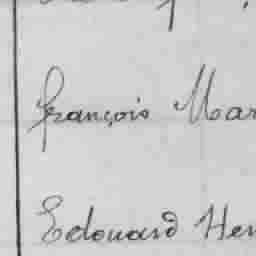 françois Mar
Edouard Hen